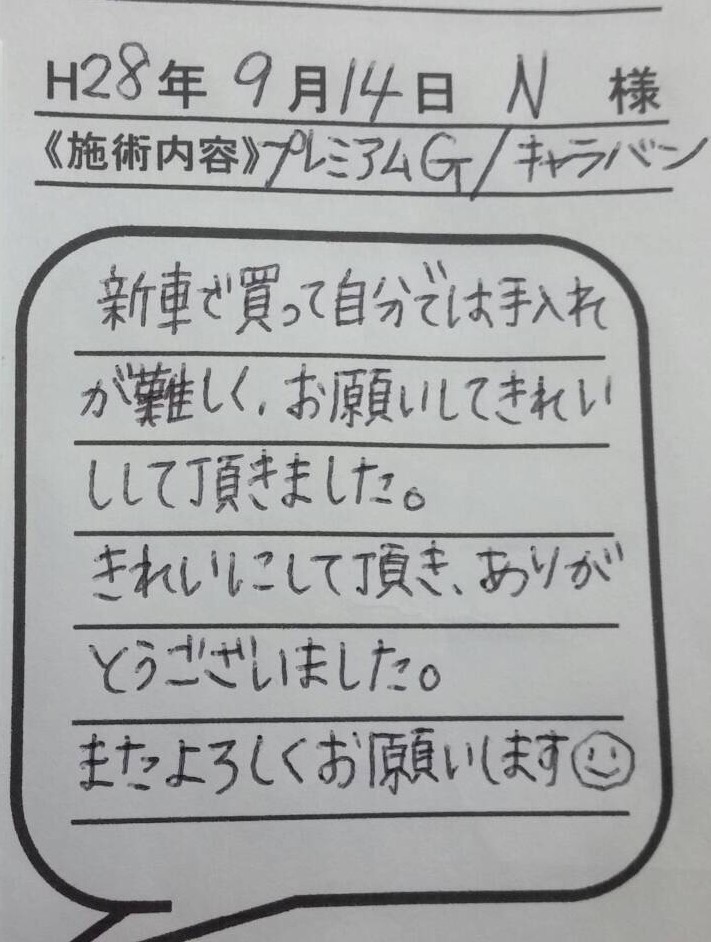 H28年 9月14日 N 様
《施術内容》プレミアムG/キャラバン
新車で買って自分では手入れ
が難しく、お願いしてきれい
ししして頂きました。
きれいにして頂き、ありが
とうございました。
またよろしくお願いします☺